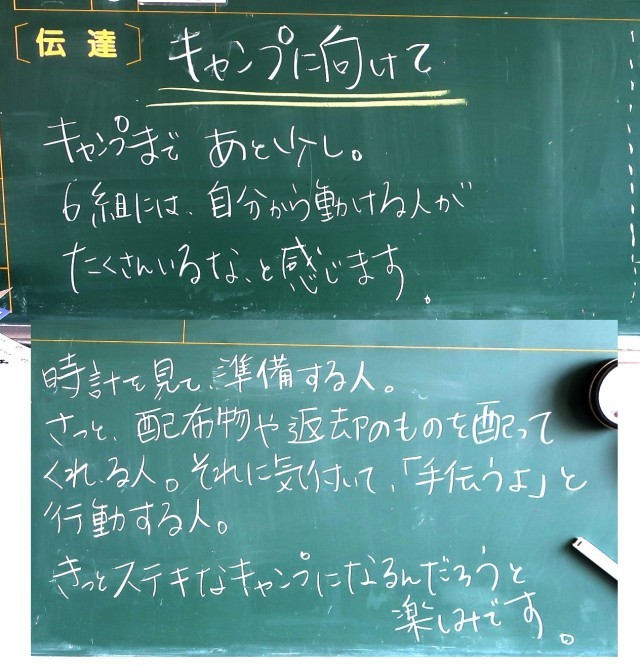 〔伝達〕
キャンプに向けて
キャンプまで あと少し。
6組には、自分から動ける人が
たくさんいるな、と感じます。
時計を見て、準備する人。
さっと、配布物や返却のものを配って
くれる人。それに気付いて、「手伝うよ」と
行動する人。
きっとステキなキャンプになるんだろうと
楽しみです。